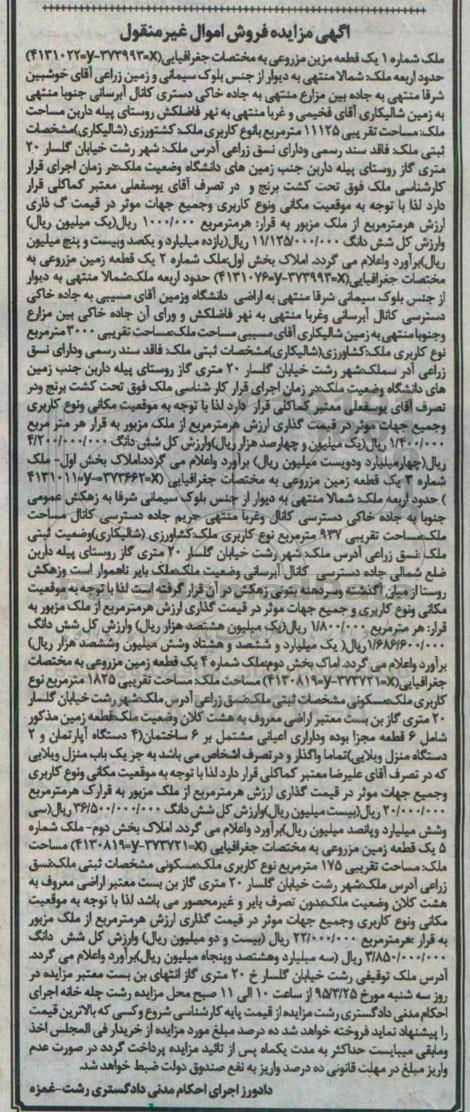 آگهی مزایده فروش اموال غیرمنقول
ملک شماره ۱ یک قطعه مزین مزروعی به مختصات جغرافیایی(X=۳۷۳۹۹۳-y=۴۱۳۱۰۲۲)
حدود اربعه ملک: شمالا منتهی به دیوار از جنس بلوک سیمانی و زمین زراعی آقای خوشبین
شرقا منتهی به جاده بین مزارع منتهی به جاده خاکی دستری کانال آبرسانی جنوبا منتهی
به زمین شالیکاری آقای فخیمی و غربا منتهی به نهر فاضلکش روستای پیله داربن مساحت
ملک: مساحت تقریبی ۱۱۱۲۵ مترمربع بانوع کاربری ملک: کشتورزی (شالیکاری)مشخصات
ثبتی ملک: فاقد سند رسمی ودارای نسق زراعی آدرس ملک: شهر رشت خیابان گلسار ۲۰
متری گاز روستای پیله داربن جنب زمین های دانشگاه وضعیت ملک:در زمان اجرای قرار
کارشناسی ملک فوق تحت کشت برنج و در تصرف آقای یوسفعلی معتبر کماکلی قرار
دارد لذا با توجه به موقعیت مکانی ونوع کاربری وجمیع جهات موثر در قیمت گ ذاری
ارزش هرمترمربع از ملک مزبور به قرار: هرمترمربع ۱۰۰۰/۰۰۰ ریال(یک میلیون ریال)
وارزش کل شش دانگ ۱۱/۱۲۵/۰۰۰/۰۰۰ ریال(یازده میلیارد و یکصد وبیست و پنج میلیون
ریال)برآورد واعلام می گردد. املاک بخش اول:ملک شماره ۲ یک قطعه زمین مزروعی به
مختصات جغرافیایی(X=۳۷۳۹۹۳-y=۴۱۳۱۰۷۶) حدود اربعه ملک:شمالا منتهی به دیوار
از جنس بلوک سیمانی شرقا منتهی به اراضی دانشگاه وزمین آقای مسیبی به جاده خاکی
دسترسی کانال آبرسانی وغربا منتهی به نهر فاضلکش و ورای آن جاده خاکی بین مزارع
وجنوبا منتهی به زمین شالیکاری آقای مسیبی مساحت ملک:مساحت تقریبی ۳۰۰۰ مترمربع
نوع کاربری ملک:کشاورزی(شالیکاری)مشخصات ثبتی ملک: فاقد سند رسمی ودارای نسق
زراعی آدر سملک:شهر رشت خیابان گلسار ۲۰ متری گاز روستای پیله داربن جنب زمین
های دانشگاه وضعیت ملک:در زمان اجرای قرار کار شناسی ملک فوق تحت کشت برنج ودر
تصرف آقای یوسفعلی معتبر کماکلی قرار دارد لذا با توجه به موقعیت مکانی ونوع کاربری
وجمیع جهات موثر در قیمت گذاری ارزش هرمترمربع از ملک مزبور به قرار هر متر مربع
۱/۴۰۰/۰۰۰ ریال(یک میلیون و چهارصد هزار ریال)وارزش کل شش دانگ ۴/۲۰۰/۰۰۰/۰۰۰
ریال(چهارمیلیارد ودویست میلیون ریال) برآورد واعلام می گردد.املاک بخش اول- ملک
شماره ۳-یک قطعه زمین مزروعی به مختصات جغرافیایی (X=۳۷۳۶۶۲-y=۴۱۳۱۰۱۱
) حدود اربعه ملک: شمالا منتهی به دیوار از جنس بلوک سیمانی شرقا به زهکش عمومی
جنوبا به جاده خاکی دسترسی کانال وغربا منتهی حریم جاده دسترسی کانال مساحت
ملک:مساحت تقریبی ۹۳۷ مترمربع نوع کاربری ملک:کشاورزی (شالیکاری)وضعیت ثبتی
ملک :نسق زراعی آدرس ملک: شهر رشت خیابان گلسار ۲۰ متری گاز روستای پیله داربن
ضلع شمالی جاده دسترسی کانال آبرسانی وضعیت ملک:ملک بایر ناهموار است وزهکش
روستا از میان آگذشته وسردهنه بتونی زهکش در آن قرار گرفته است لذا با توجه به موقعیت
مکانی ونوع کاربری و جمیع جهات موثر در قیمت گذاری ارزش هرمترمربع از ملک مزبور به
قرار: هر مترمربع ۱/۸۰۰/۰۰۰ ریال(یک میلیون هشتصد هزار ریال) وارزش کل شش دانگ
۱/۶۸۶/۶۰۰/۰۰۰ریال( یک میلیارد و ششصد و هشتاد وشش میلیون وششصد هزار ریال)
برآورد واعلام می گردد. املاک بخش دوم:ملک شماره ۴ یک قطعه زمین مزروعی به مختصات
جغرافیایی(X=۳۷۳۷۲۱-y=۴۱۳۰۸۱۹) مساحت ملک: مساحت تقریبی ۱۸۲۵ مترمربع نوع
کاربری ملک:مسکونی مشخصات ثبتی ملک:نسق زراعی آدرس ملک:شهر رشت خیابان گلسار
۲۰ متری گاز بن بست معتبر اراضی معروف به هشت کلان وضعیت ملک:قطعه زمین مذکور
شامل ۶ قطعه مجزا بوده وداراری اعیانی مشتمل بر ۶ ساختمان(۴ دستگاه آپارتمان و ۲
دستگاه منزل ویلایی)تماما واگذار و درتصرف اشخاص می باشد به جز یک باب منزل ویلایی
که در تصرف آقای علیرضا معتبر کماکلی قرار دارد لذا با توجه به موقعیت مکانی ونوع کاربری
وجمیع جهات موثر در قیمت گذاری ارزش هرمترمربع از ملک مزبور به قرارک هرمترمربع
۲۰/۰۰۰/۰۰۰ ریال(بیست میلیون ریال)وارزش کل شش دانگ ۳۶/۵۰۰/۰۰۰/۰۰۰ ریال(سی
وشش میلیارد وپانصد میلیون ریال)برآورد واعلام می گردد. املاک بخش دوم- ملک شماره
۵ یک قطعه زمین مزروعی به مختصات جغرافیایی (X=۳۷۳۷۲۱-y=۴۱۳۰۸۱۹) مساحت
ملک: مساحت تقریبی ۱۷۵ مترمربع نوع کاربری ملک:مسکونی مشخصات ثبتی ملک:نسق
زراعی آدرس ملک:شهر رشت خیابان گلسار ۲۰ متری گاز بن بست معتبر اراضی معروف به
هشت کلان وضعیت ملک:بدون تصرف بایر و غیرمحصور می باشد لذا با توجه به موقعیت
مکانی ونوع کاربری وجمیع جهات موثر در قیمت گذاری ارزش هرمترمربع از ملک مزبور
به قرار :هرمترمربع ۲۲/۰۰۰/۰۰۰ ریال (بیست و دو میلیون ریال) وارزش کل شش دانگ
۳/۸۵۰/۰۰۰/۰۰۰ ریال (سه میلیارد وهشتصد وپنجاه میلیون ریال)برآورد واعلام می گردد.
آدرس ملک توقیفی رشت خیابان گلسار خ ۲۰ متری گاز انتهای بن بست معتبر مزایده در
روز سه شنبه مورخ ۹۵/۳/۲۵ از ساعت ۱۰ الی ۱۱ صبح محل مزایده رشت چله خانه اجرای
احکام مدنی دادگستری رشت مزایده از قیمت پایه کارشناسی شروع وکسی که بالاترین قیمت
را پیشنهاد نماید فروخته خواهد شد ده درصد مبلغ مورد مزایده از خریدار فی المجلس اخذ
ومابقی میبایست حداکثر به مدت یکماه پس از تائید مزایده پرداخت گردد در صورت عدم
واریز مبلغ در مهلت قانونی ده درصد واریز به نفع صندوق دولت ضبط خواهد شد.
دادورز اجرای احکام مدنی دادگستری رشت-غمزه